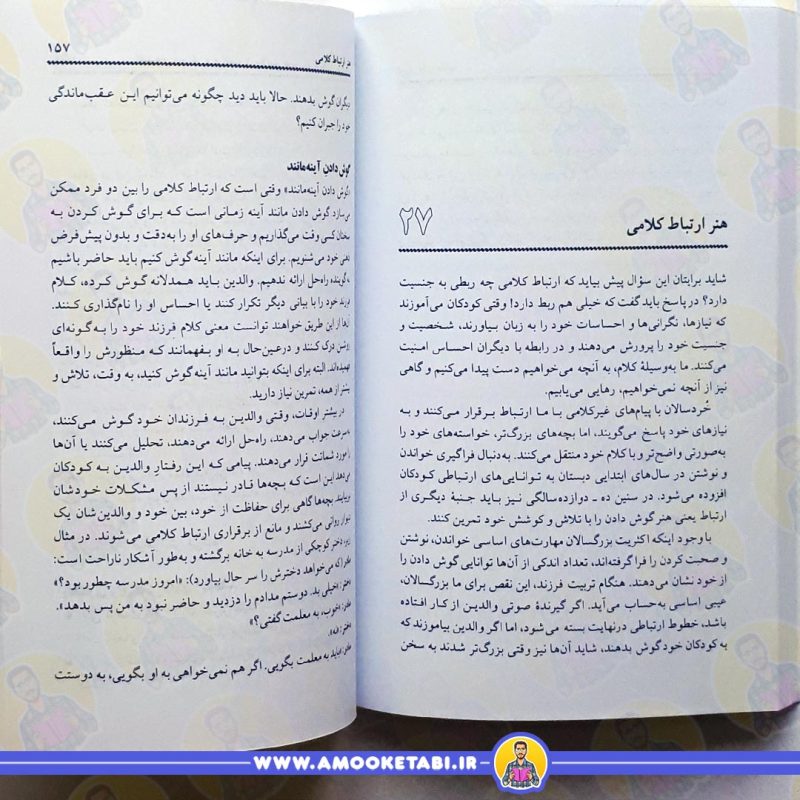 ۲۷
هنر ارتباط کلامی
شاید برایتان این سؤال پیش بیاید که ارتباط کلامی چه ربطی به جنسیت
دارد؟ در پاسخ باید گفت که خیلی هم ربط دارد! وقتی کودکان می‌آموزند
که نیازها، نگرانی‌ها و احساسات خود را به زبان بیاورند، شخصیت و
جنسیت خود را پرورش می‌دهند و در رابطه با دیگران احساس امنیت
می‌کنند. ما به‌وسیلهٔ کلام، به آنچه می‌خواهیم دست پیدا می‌کنیم و گاهی
نیز از آنچه نمی‌خواهیم، رهایی می‌یابیم.
خُردسالان با پیام‌های غیرکلامی با ما ارتباط برقرار می‌کنند و به
نیازهای خود پاسخ می‌گویند، اما بچه‌های بزرگ‌تر، خواسته‌های خود را
به‌صورتی واضح‌تر و با کلام خود منتقل می‌کنند. به‌دنبال فراگیری خواندن
و نوشتن در سال‌های ابتدایی دبستان به توانایی‌های ارتباطی کودکان
افزوده می‌شود. در سنین ده ـ دوازده‌سالگی نیز باید جنبهٔ دیگری از
ارتباط یعنی هنر گوش دادن را با تلاش و کوشش خود تمرین کنند.
با وجود اینکه اکثریت بزرگسالان مهارت‌های اساسی خواندن، نوشتن
و صحبت کردن را فرا گرفته‌اند، تعداد اندکی از آن‌ها توانایی گوش دادن را
از خود نشان می‌دهند. هنگام تربیت فرزند، این نقص برای ما بزرگسالان،
عیبی اساسی به‌حساب می‌آید. اگر گیرندهٔ صوتی والدین از کار افتاده
باشد، خطوط ارتباطی درنهایت بسته می‌شود، اما اگر والدین بیاموزند که
به کودکان خود گوش بدهند، شاید آن‌ها نیز وقتی بزرگ‌تر شدند به سخن
هنر ارتباط کلامی
۱۵۷
دیگران گوش بدهند. حالا باید دید چگونه می‌توانیم این عقب‌ماندگی
خود را جبران کنیم؟
گوش دادن آینه‌مانند
«گوش دادن آینه‌مانند» وقتی است که ارتباط کلامی را بین دو فرد ممکن
می‌سازد. گوش دادن مانند آینه زمانی است که برای گوش کردن به
سخنان کسی وقت می‌گذاریم و حرف‌های او را به‌دقت و بدون پیش‌فرض
ذهنی می‌شنویم. برای اینکه مانند آینه گوش کنیم باید حاضر باشیم
گوینده راه‌حل ارائه ندهیم. والدین باید همدلانه گوش کرده، کلام
فرزند خود را با بیانی دیگر تکرار کنند یا احساس او را نام‌گذاری کنند.
آن‌ها از این طریق خواهند توانست معنی کلام فرزند خود را به‌گونه‌ای
روشن درک کنند و درعین‌حال به او بفهمانند که منظورش را واقعاً
فهمیده‌اند. البته برای اینکه بتوانید مانند آینه گوش کنید، به وقت، تلاش و
بیشتر از همه، تمرین نیاز دارید.
در بیشتر اوقات، وقتی والدین به فرزندان خود گوش می‌کنند،
به‌سرعت جواب می‌دهند، راه‌حل ارائه می‌دهند، تحلیل می‌کنند یا آن‌ها
را مورد شماتت قرار می‌دهند. پیامی که این رفتارِ والدین به کودکان
می‌دهد این است که بچه‌ها قادر نیستند از پس مشکلات خودشان
بربیایند. بچه‌ها گاهی برای حفاظت از خود، بین خود و والدین‌شان یک
دیوار روانی می‌کشند و مانع از برقراری ارتباط کلامی می‌شوند. در مثال
زیر، دختر کوچکی از مدرسه به خانه برگشته و به‌طور آشکار ناراحت است:
مادر (که می‌خواهد دخترش را سر حال بیاورد): «امروز مدرسه چطور بود؟»
دختر: «خیلی بد. دوستم مدادم را دزدید و حاضر نبود به من پس بدهد».
مادر: «خوب، به معلمت گفتی؟»
دختر: «نه».
مادر: «باید به معلمت بگویی. اگر هم نمی‌خواهی به او بگویی، به دوستت
WWW.AMOOKETABI.IR